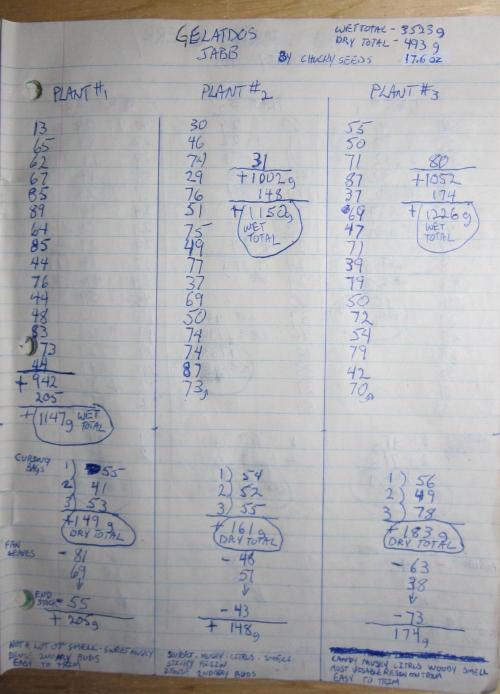 GELATDOS
JABB
BY CHUCKY SEEDS
WET TOTAL - 3523g
DRY TOTAL - 493g
17.6 oz
PLANT #1
13
65
62
67
85
89
64
85
44
76
44
48
83
73
44
+ 942
205
+ 1147g WET
TOTAL
CURING
BAGS
1) 55
2) 41
3) 53
+ 149g
DRY TOTAL
FAN
LEAVES
- 81
69
↓
END
STACK - 55
+ 205g
NOT A LOT OF SMELL - SWEET MUSKY
DENSE 2NDARY BUDS
EASY TO TRIM
PLANT #2
30
46
74
29
76
51
75
49
77
37
69
50
74
74
87
73g
31
+1002g
148
+ 1150g
WET
TOTAL
1) 54
2) 52
3) 55
+ 161g
DRY TOTAL
- 48
57
↓
- 43
+ 148g
SWEET - MUSKY - CITRUS - SMELL
STICKY RESIN
DENSE 2NDARY BUDS
PLANT #3
55
50
71
87
37
69
47
71
39
79
50
72
54
79
42
70g
80
+1052
174
+ 1226g
WET
TOTAL
1) 56
2) 49
3) 78
+ 183g
DRY TOTAL
- 63
38
↓
- 73
174g
CANDY MUSKY CITRUS WOODY SMELL
MOST VISIBLE RESIN ON TRIM
EASY TO TRIM